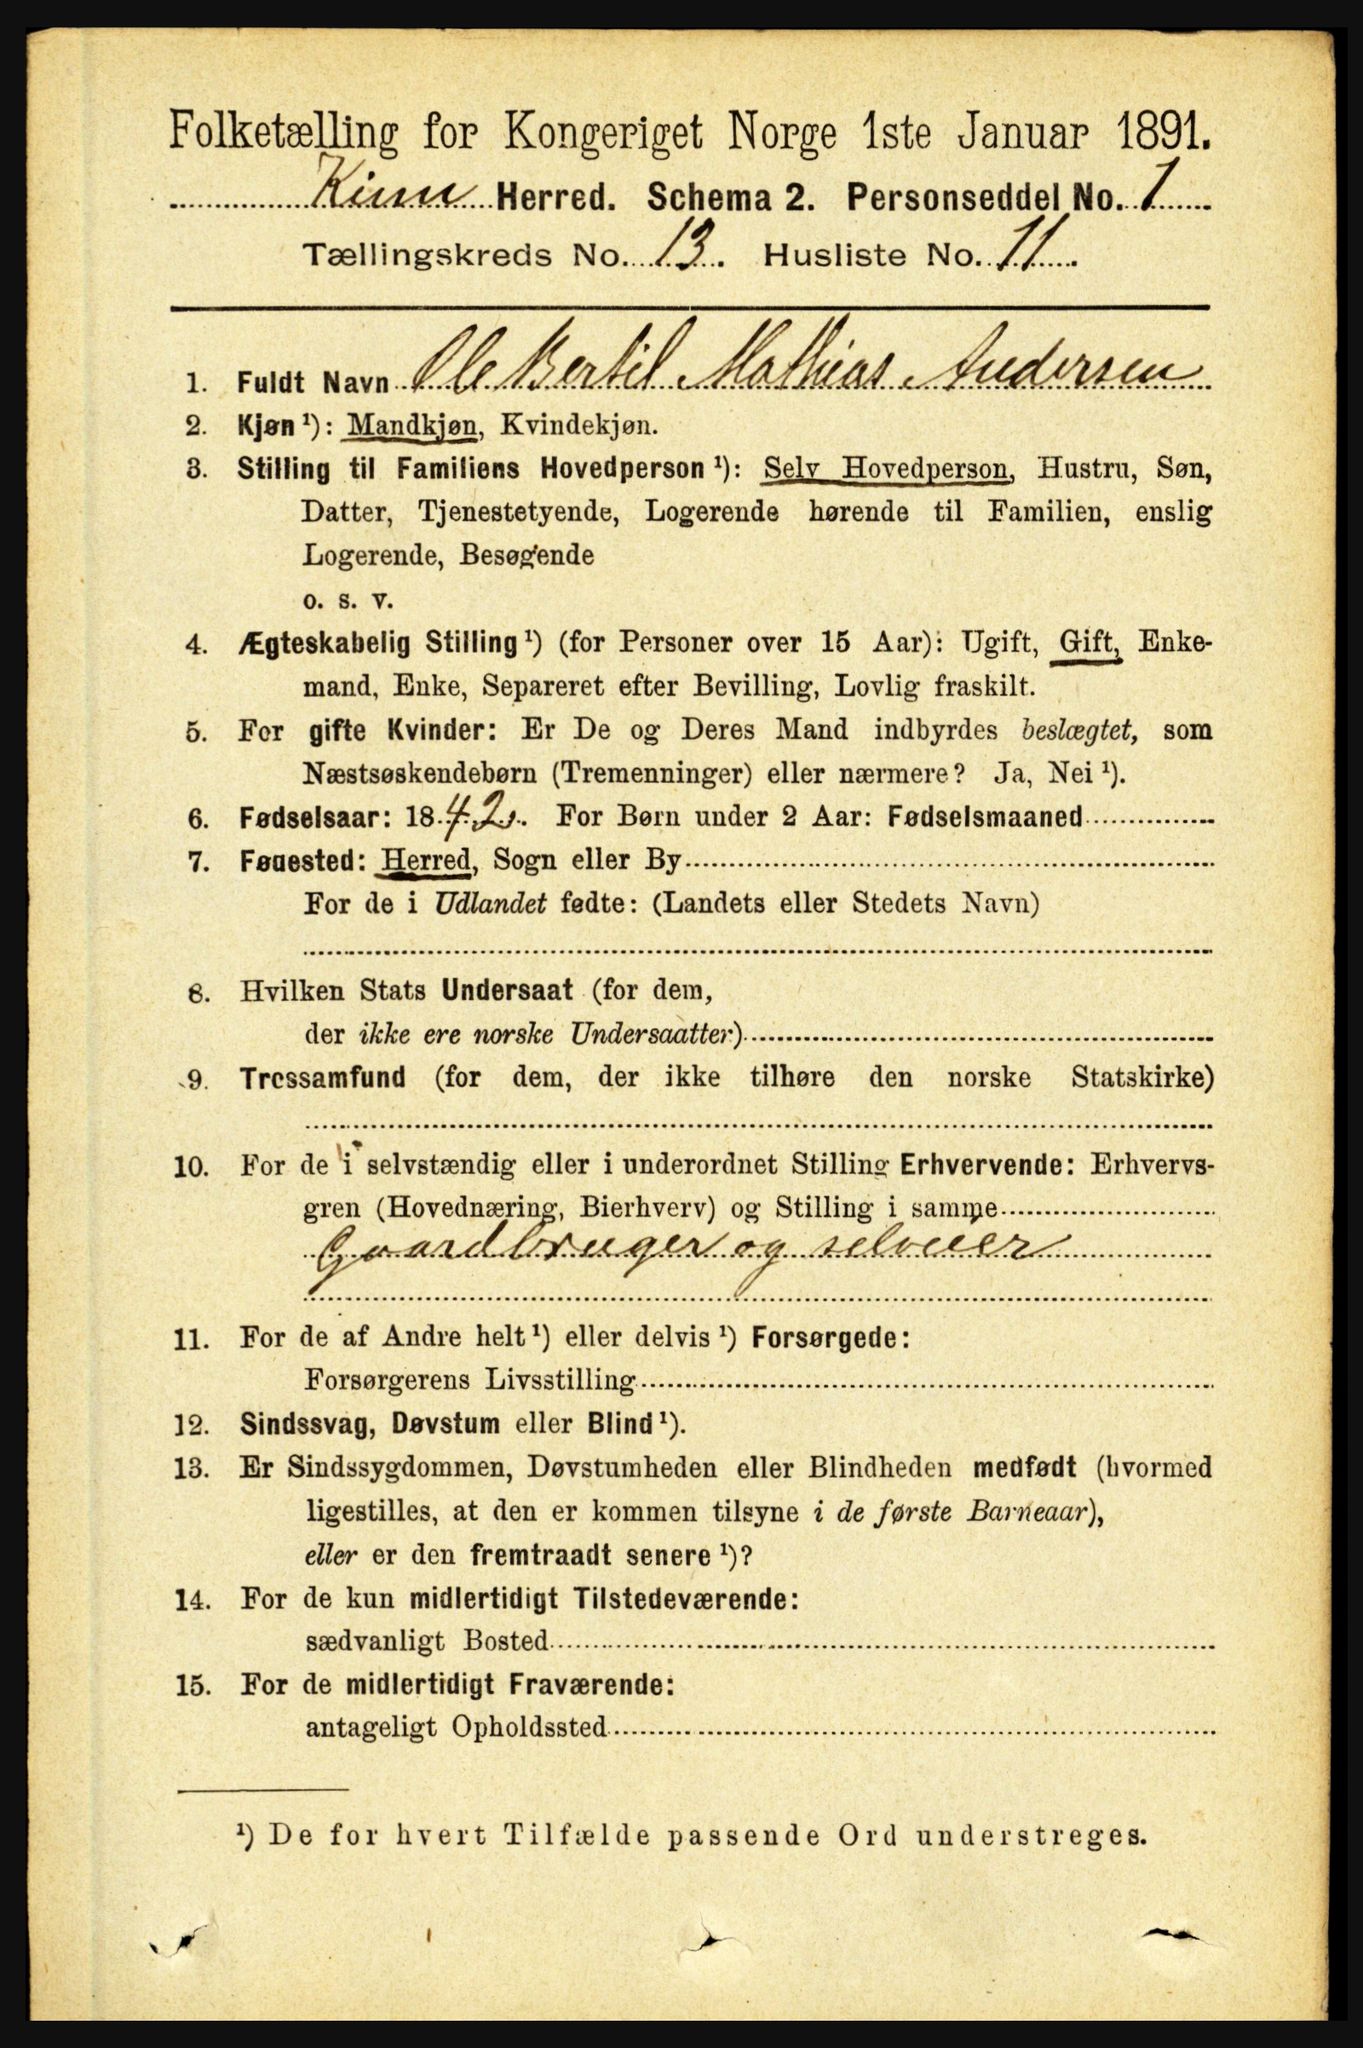 Folketælling for Kongeriget Norge 1ste Januar 1891.
Kinn Herred. Schema 2. Personseddel No. 1
Tællingskreds No. 13. Husliste No. 11.
1. Fuldt Navn Ole Bertil Mathias Andersen
2. Kjøn ¹): Mandkjøn, Kvindekjøn.
3. Stilling til Familiens Hovedperson ¹): Selv Hovedperson, Hustru, Søn,
Datter, Tjenestetyende, Logerende hørende til Familien, enslig
Logerende, Besøgende
o. s. v.
4. Ægteskabelig Stilling ¹) (for Personer over 15 Aar): Ugift, Gift, Enke-
mand, Enke, Separeret efter Bevilling, Lovlig fraskilt.
5. For gifte Kvinder: Er De og Deres Mand indbyrdes beslægtet, som
Næstsøskendebørn (Tremenninger) eller nærmere? Ja, Nei ¹).
6. Fødselsaar: 1842. For Børn under 2 Aar: Fødselsmaaned
7. Føuested: Herred, Sogn eller By
For de i Udlandet fødte: (Landets eller Stedets Navn)
8. Hvilken Stats Undersaat (for dem,
der ikke ere norske Undersaatter)
9. Trossamfund (for dem, der ikke tilhøre den norske Statskirke)
10. For de i selvstændig eller i underordnet Stilling Erhvervende: Erhvervs-
gren (Hovednæring, Bierhverv) og Stilling i samme
Gaardbruger og selveier
11. For de af Andre helt ¹) eller delvis ¹) Forsørgede:
Forsørgerens Livsstilling
12. Sindssvag, Døvstum eller Blind ¹).
13. Er Sindssygdommen, Døvstumheden eller Blindheden medfødt (hvormed
ligestilles, at den er kommen tilsyne i de første Barneaar),
eller er den fremtraadt senere ¹)?
14. For de kun midlertidigt Tilstedeværende:
sædvanligt Bosted
15. For de midlertidigt Fraværende:
antageligt Opholdssted
¹) De for hvert Tilfælde passende Ord understreges.